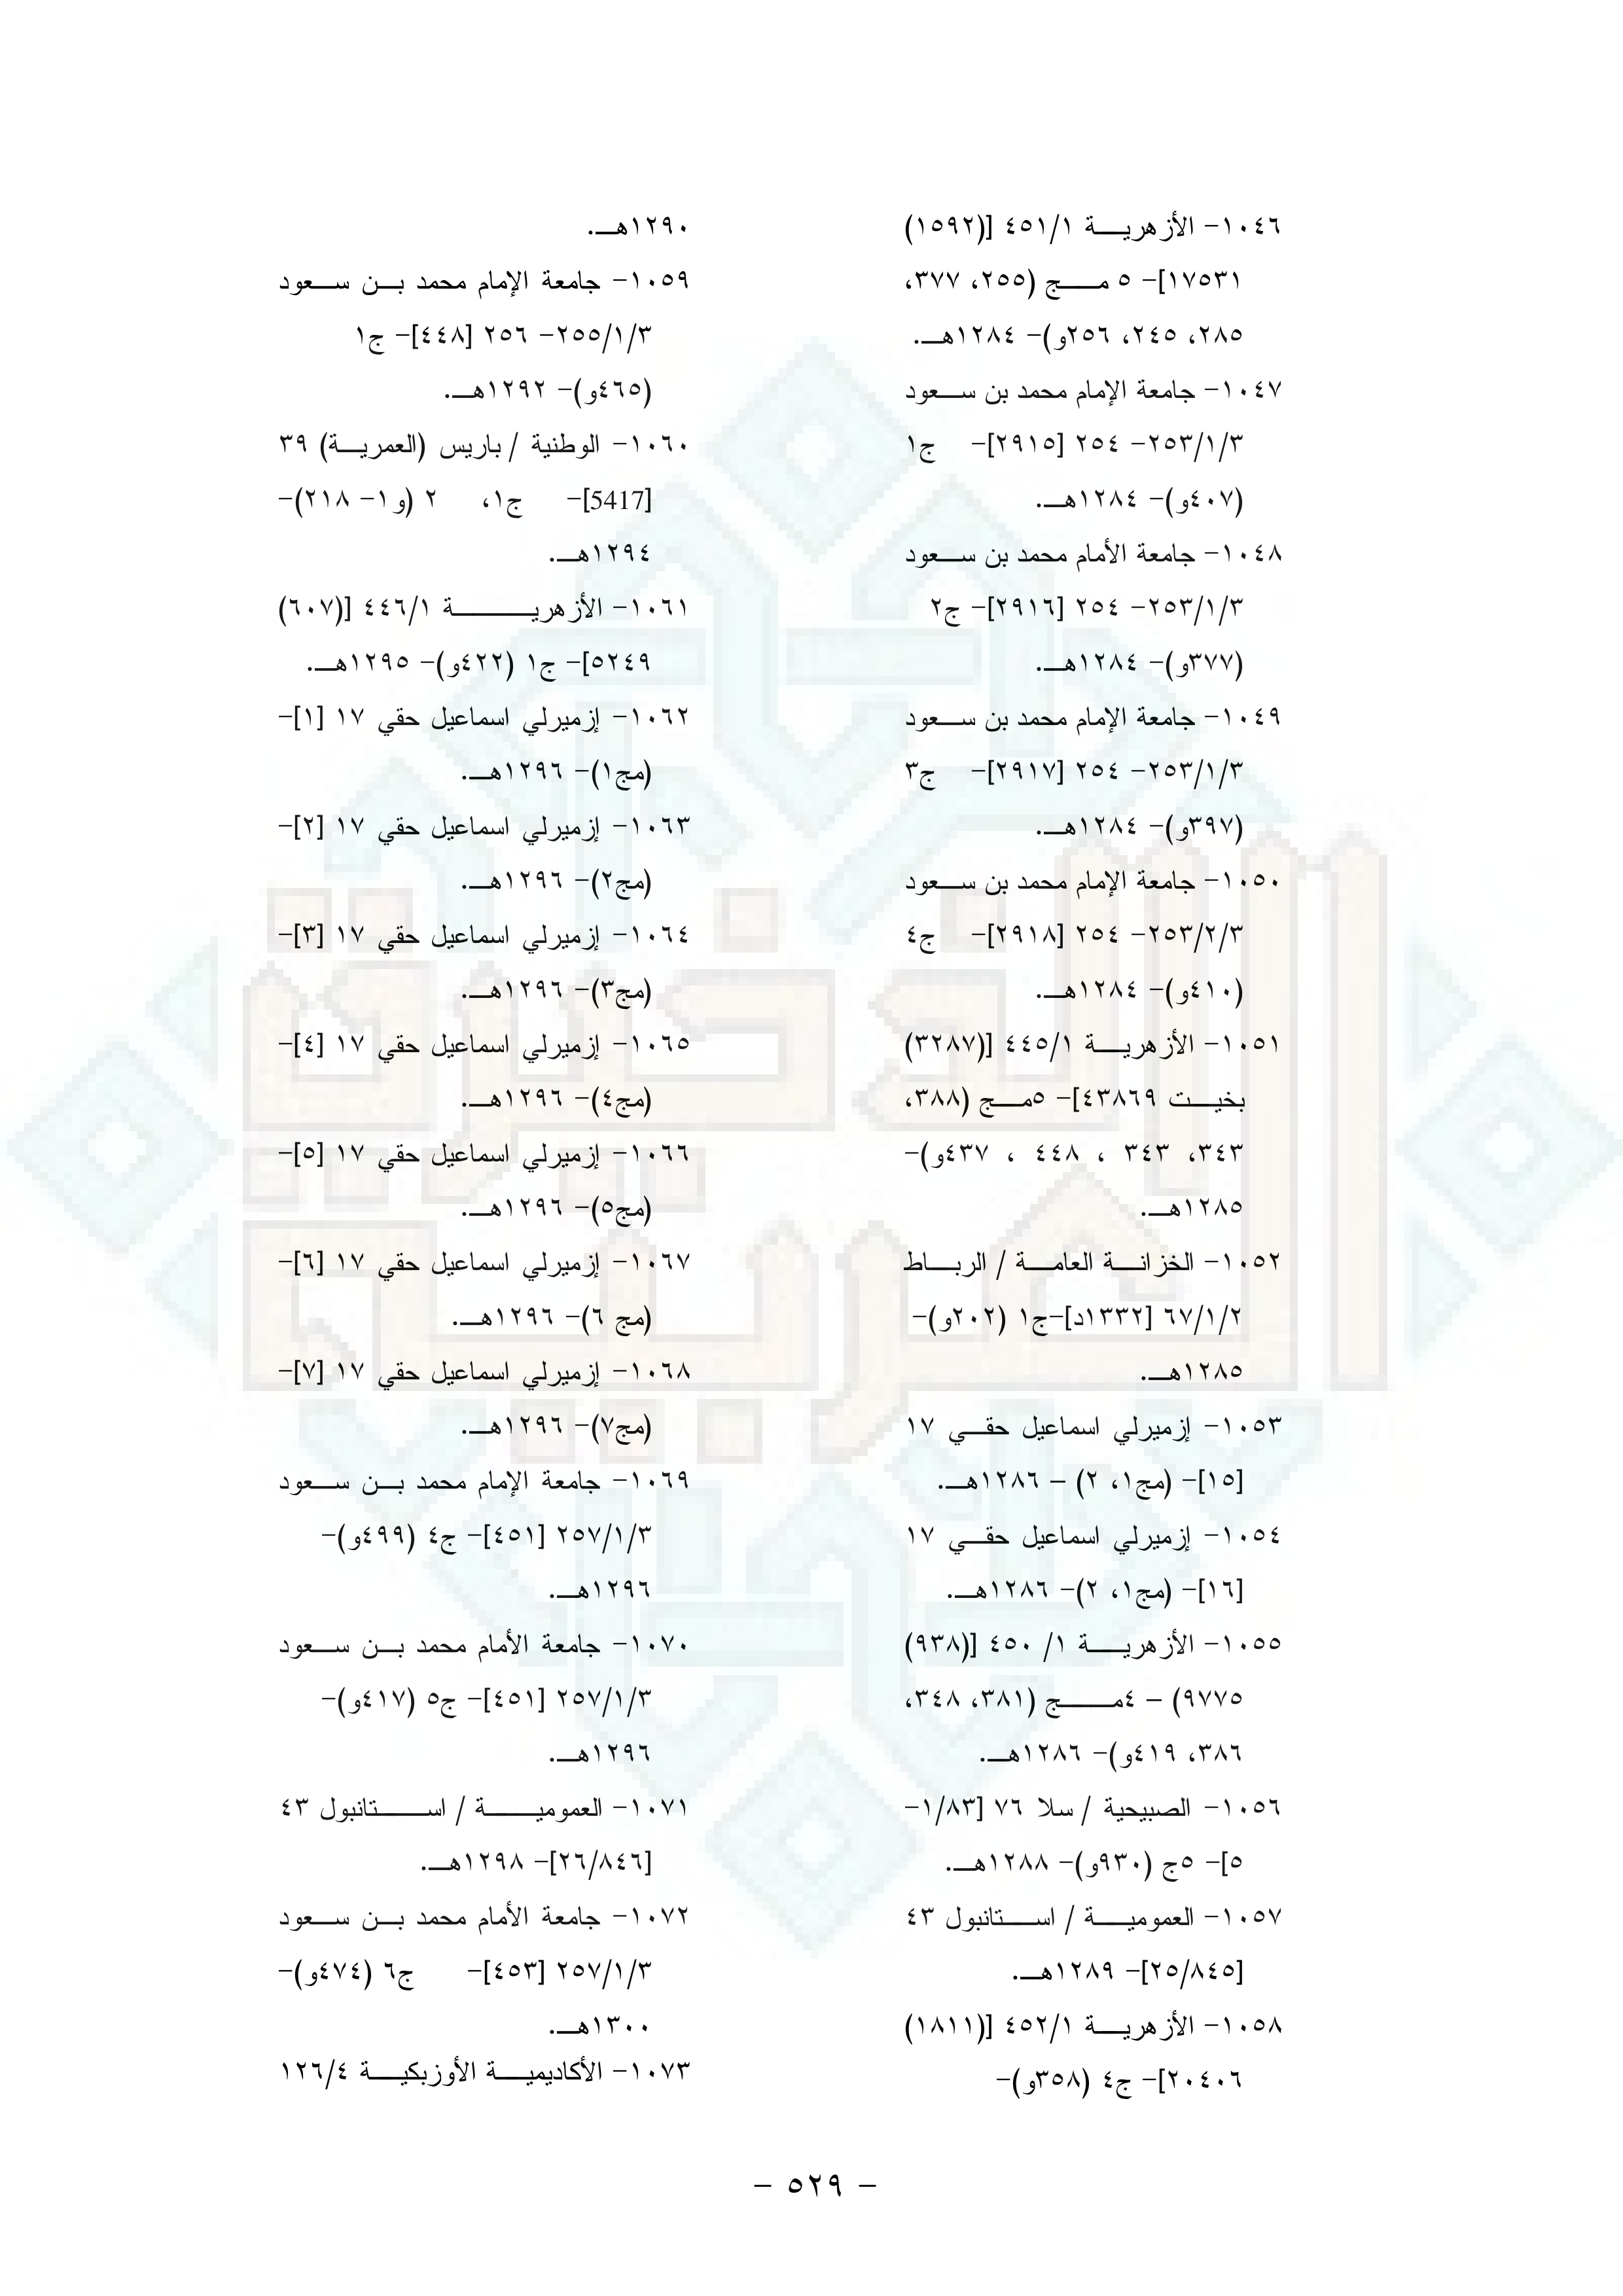 ١٠٤٦- الأزهرية ٤٥١/١ [(١٥٩٢)
١٧٥٣١]- ٥ مج (٢٥٥، ٣٧٧،
٢٨٥، ٢٤٥، ٢٥٦و)- ١٢٨٤هـ.
١٠٤٧- جامعة الإمام محمد بن سعود
٢٥٣/١/٣- ٢٥٤ [٢٩١٥]- ج١
(٤٠٧و)- ١٢٨٤هـ.
١٠٤٨- جامعة الأمام محمد بن سعود
٢٥٣/١/٣- ٢٥٤ [٢٩١٦]- ج٢
(٣٧٧و)- ١٢٨٤هـ.
١٠٤٩- جامعة الإمام محمد بن سعود
٢٥٣/١/٣- ٢٥٤ [٢٩١٧]- ج٣
(٣٩٧و)- ١٢٨٤هـ.
١٠٥٠- جامعة الإمام محمد بن سعود
٢٥٣/٢/٣- ٢٥٤ [٢٩١٨]- ج٤
(٤١٠و)- ١٢٨٤هـ.
١٠٥١- الأزهرية ٤٤٥/١ [(٣٢٨٧)
بخيت ٤٣٨٦٩]- ٥مج (٣٨٨،
٣٤٣، ٣٤٣ ، ٤٤٨ ، ٤٣٧و)-
١٢٨٥هـ.
١٠٥٢- الخزانة العامة / الرباط
٦٧/١/٢ [١٣٣٢د]-ج١ (٢٠٢و)-
١٢٨٥هـ.
١٠٥٣- إزميرلي اسماعيل حقي ١٧
[١٥]- (مج١، ٢) - ١٢٨٦هـ.
١٠٥٤- إزميرلي اسماعيل حقي ١٧
[١٦]- (مج١، ٢)- ١٢٨٦هـ.
١٠٥٥- الأزهرية ١/ ٤٥٠ [(٩٣٨)
٩٧٧٥) - ٤مج (٣٨١، ٣٤٨،
٣٨٦، ٤١٩و)- ١٢٨٦هـ.
١٠٥٦- الصبيحية / سلا ٧٦ [١/٨٣-
٥]- ٥ج (٩٣٠و)- ١٢٨٨هـ.
١٠٥٧- العمومية / استانبول ٤٣
[٢٥/٨٤٥]- ١٢٨٩هـ.
١٠٥٨- الأزهرية ٤٥٢/١ [(١٨١١)
٢٠٤٠٦]- ج٤ (٣٥٨و)-
١٢٩٠هـ.
١٠٥٩- جامعة الإمام محمد بن سعود
٢٥٥/١/٣- ٢٥٦ [٤٤٨]- ج١
(٤٦٥و)- ١٢٩٢هـ.
١٠٦٠- الوطنية / باريس (العمرية) ٣٩
[5417]- ج١، ٢ (و١- ٢١٨)-
١٢٩٤هـ.
١٠٦١- الأزهرية ٤٤٦/١ [(٦٠٧)
٥٢٤٩]- ج١ (٤٢٢و)- ١٢٩٥هـ.
١٠٦٢- إزميرلي اسماعيل حقي ١٧ [١]-
(مج١)- ١٢٩٦هـ.
١٠٦٣- إزميرلي اسماعيل حقي ١٧ [٢]-
(مج٢)- ١٢٩٦هـ.
١٠٦٤- إزميرلي اسماعيل حقي ١٧ [٣]-
(مج٣)- ١٢٩٦هـ.
١٠٦٥- إزميرلي اسماعيل حقي ١٧ [٤]-
(مج٤)- ١٢٩٦هـ.
١٠٦٦- إزميرلي اسماعيل حقي ١٧ [٥]-
(مج٥)- ١٢٩٦هـ.
١٠٦٧- إزميرلي اسماعيل حقي ١٧ [٦]-
(مج ٦)- ١٢٩٦هـ.
١٠٦٨- إزميرلي اسماعيل حقي ١٧ [٧]-
(مج٧)- ١٢٩٦هـ.
١٠٦٩- جامعة الإمام محمد بن سعود
٢٥٧/١/٣ [٤٥١]- ج٤ (٤٩٩و)-
١٢٩٦هـ.
١٠٧٠- جامعة الأمام محمد بن سعود
٢٥٧/١/٣ [٤٥١]- ج٥ (٤١٧و)-
١٢٩٦هـ.
١٠٧١- العمومية / استانبول ٤٣
[٢٦/٨٤٦]- ١٢٩٨هـ.
١٠٧٢- جامعة الأمام محمد بن سعود
٢٥٧/١/٣ [٤٥٣]- ج٦ (٤٧٤و)-
١٣٠٠هـ.
١٠٧٣- الأكاديمية الأوزبكية ١٢٦/٤
- ٥٢٩ -
الذخيرة
العربية